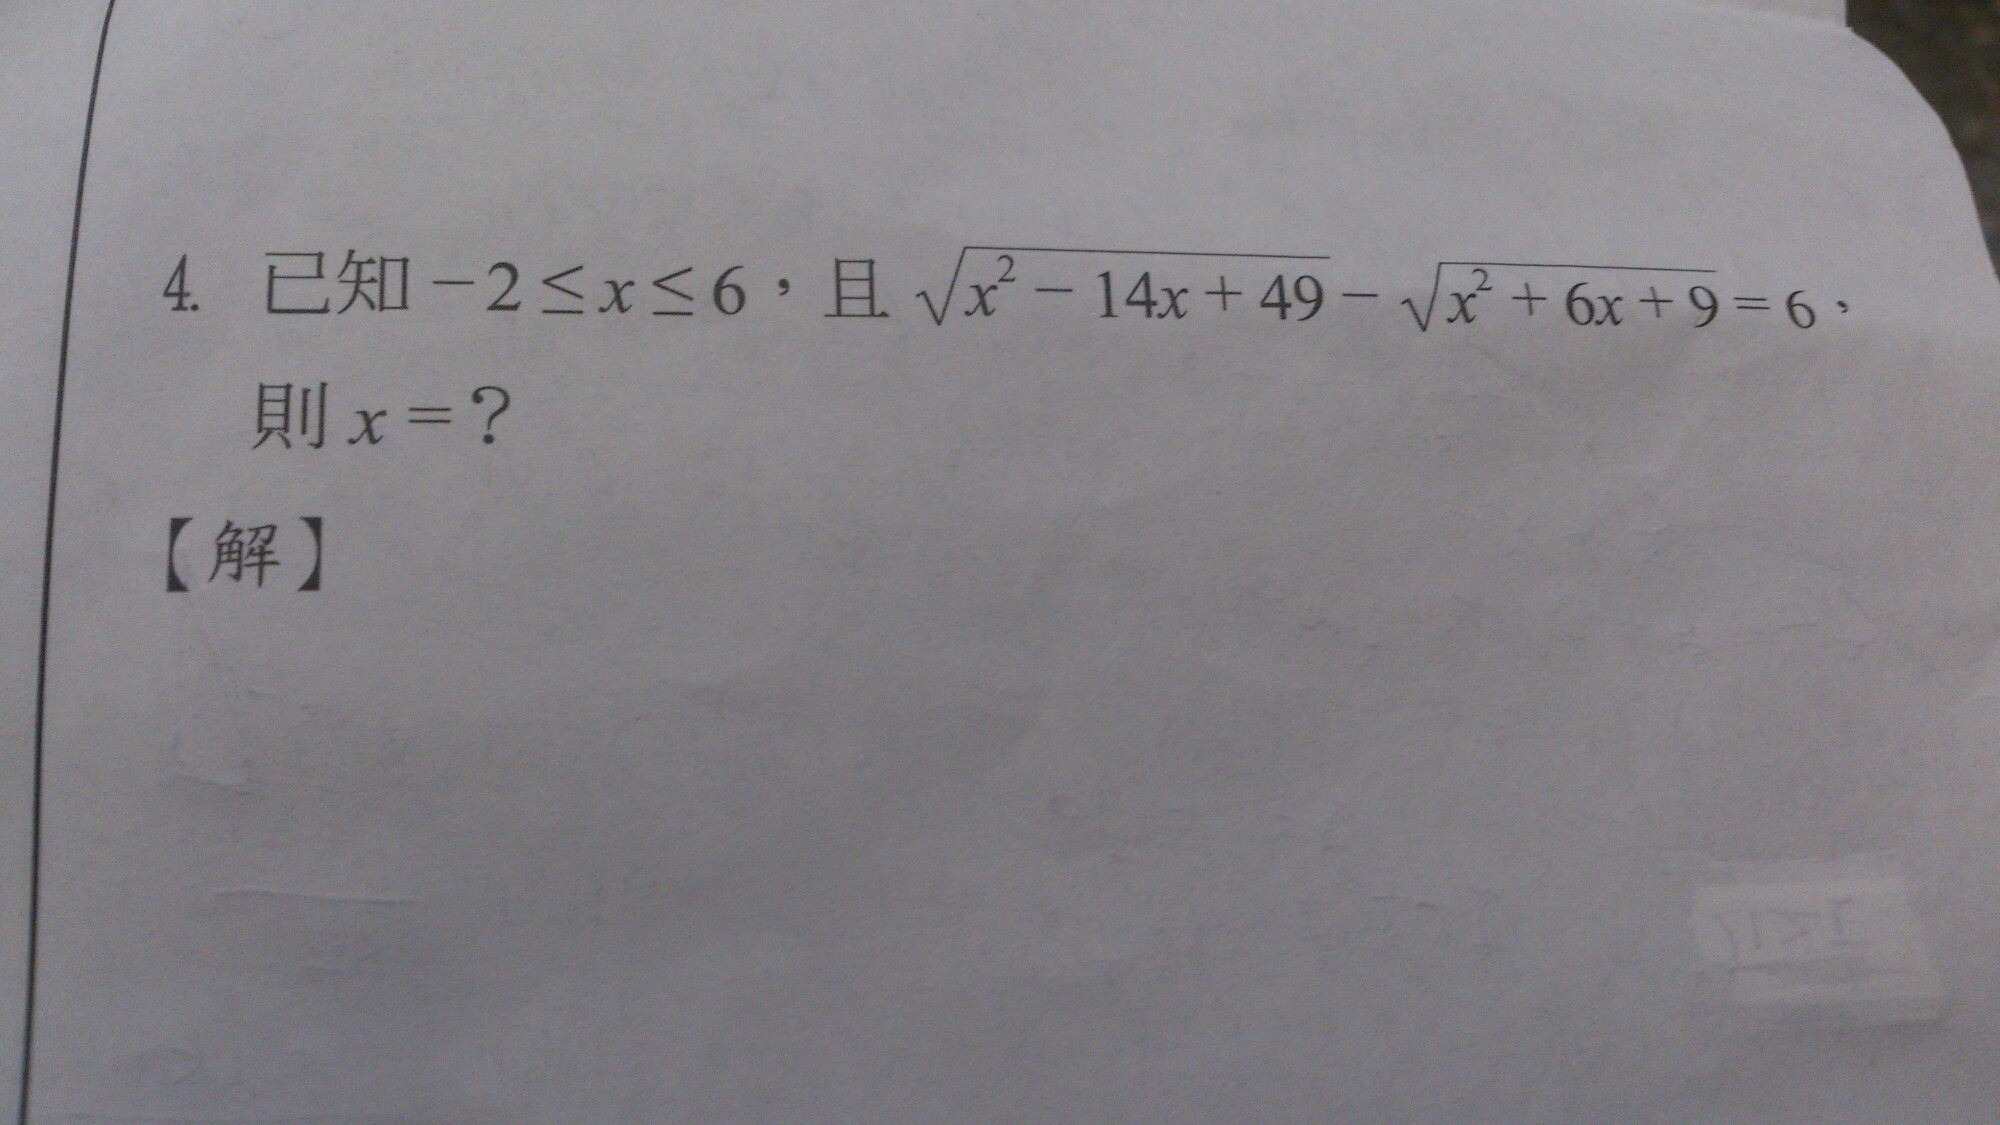 4. 已知 −2 ≤ x ≤ 6，且 √(x² − 14x + 49) − √(x² + 6x + 9) = 6，
則 x = ?
【解】